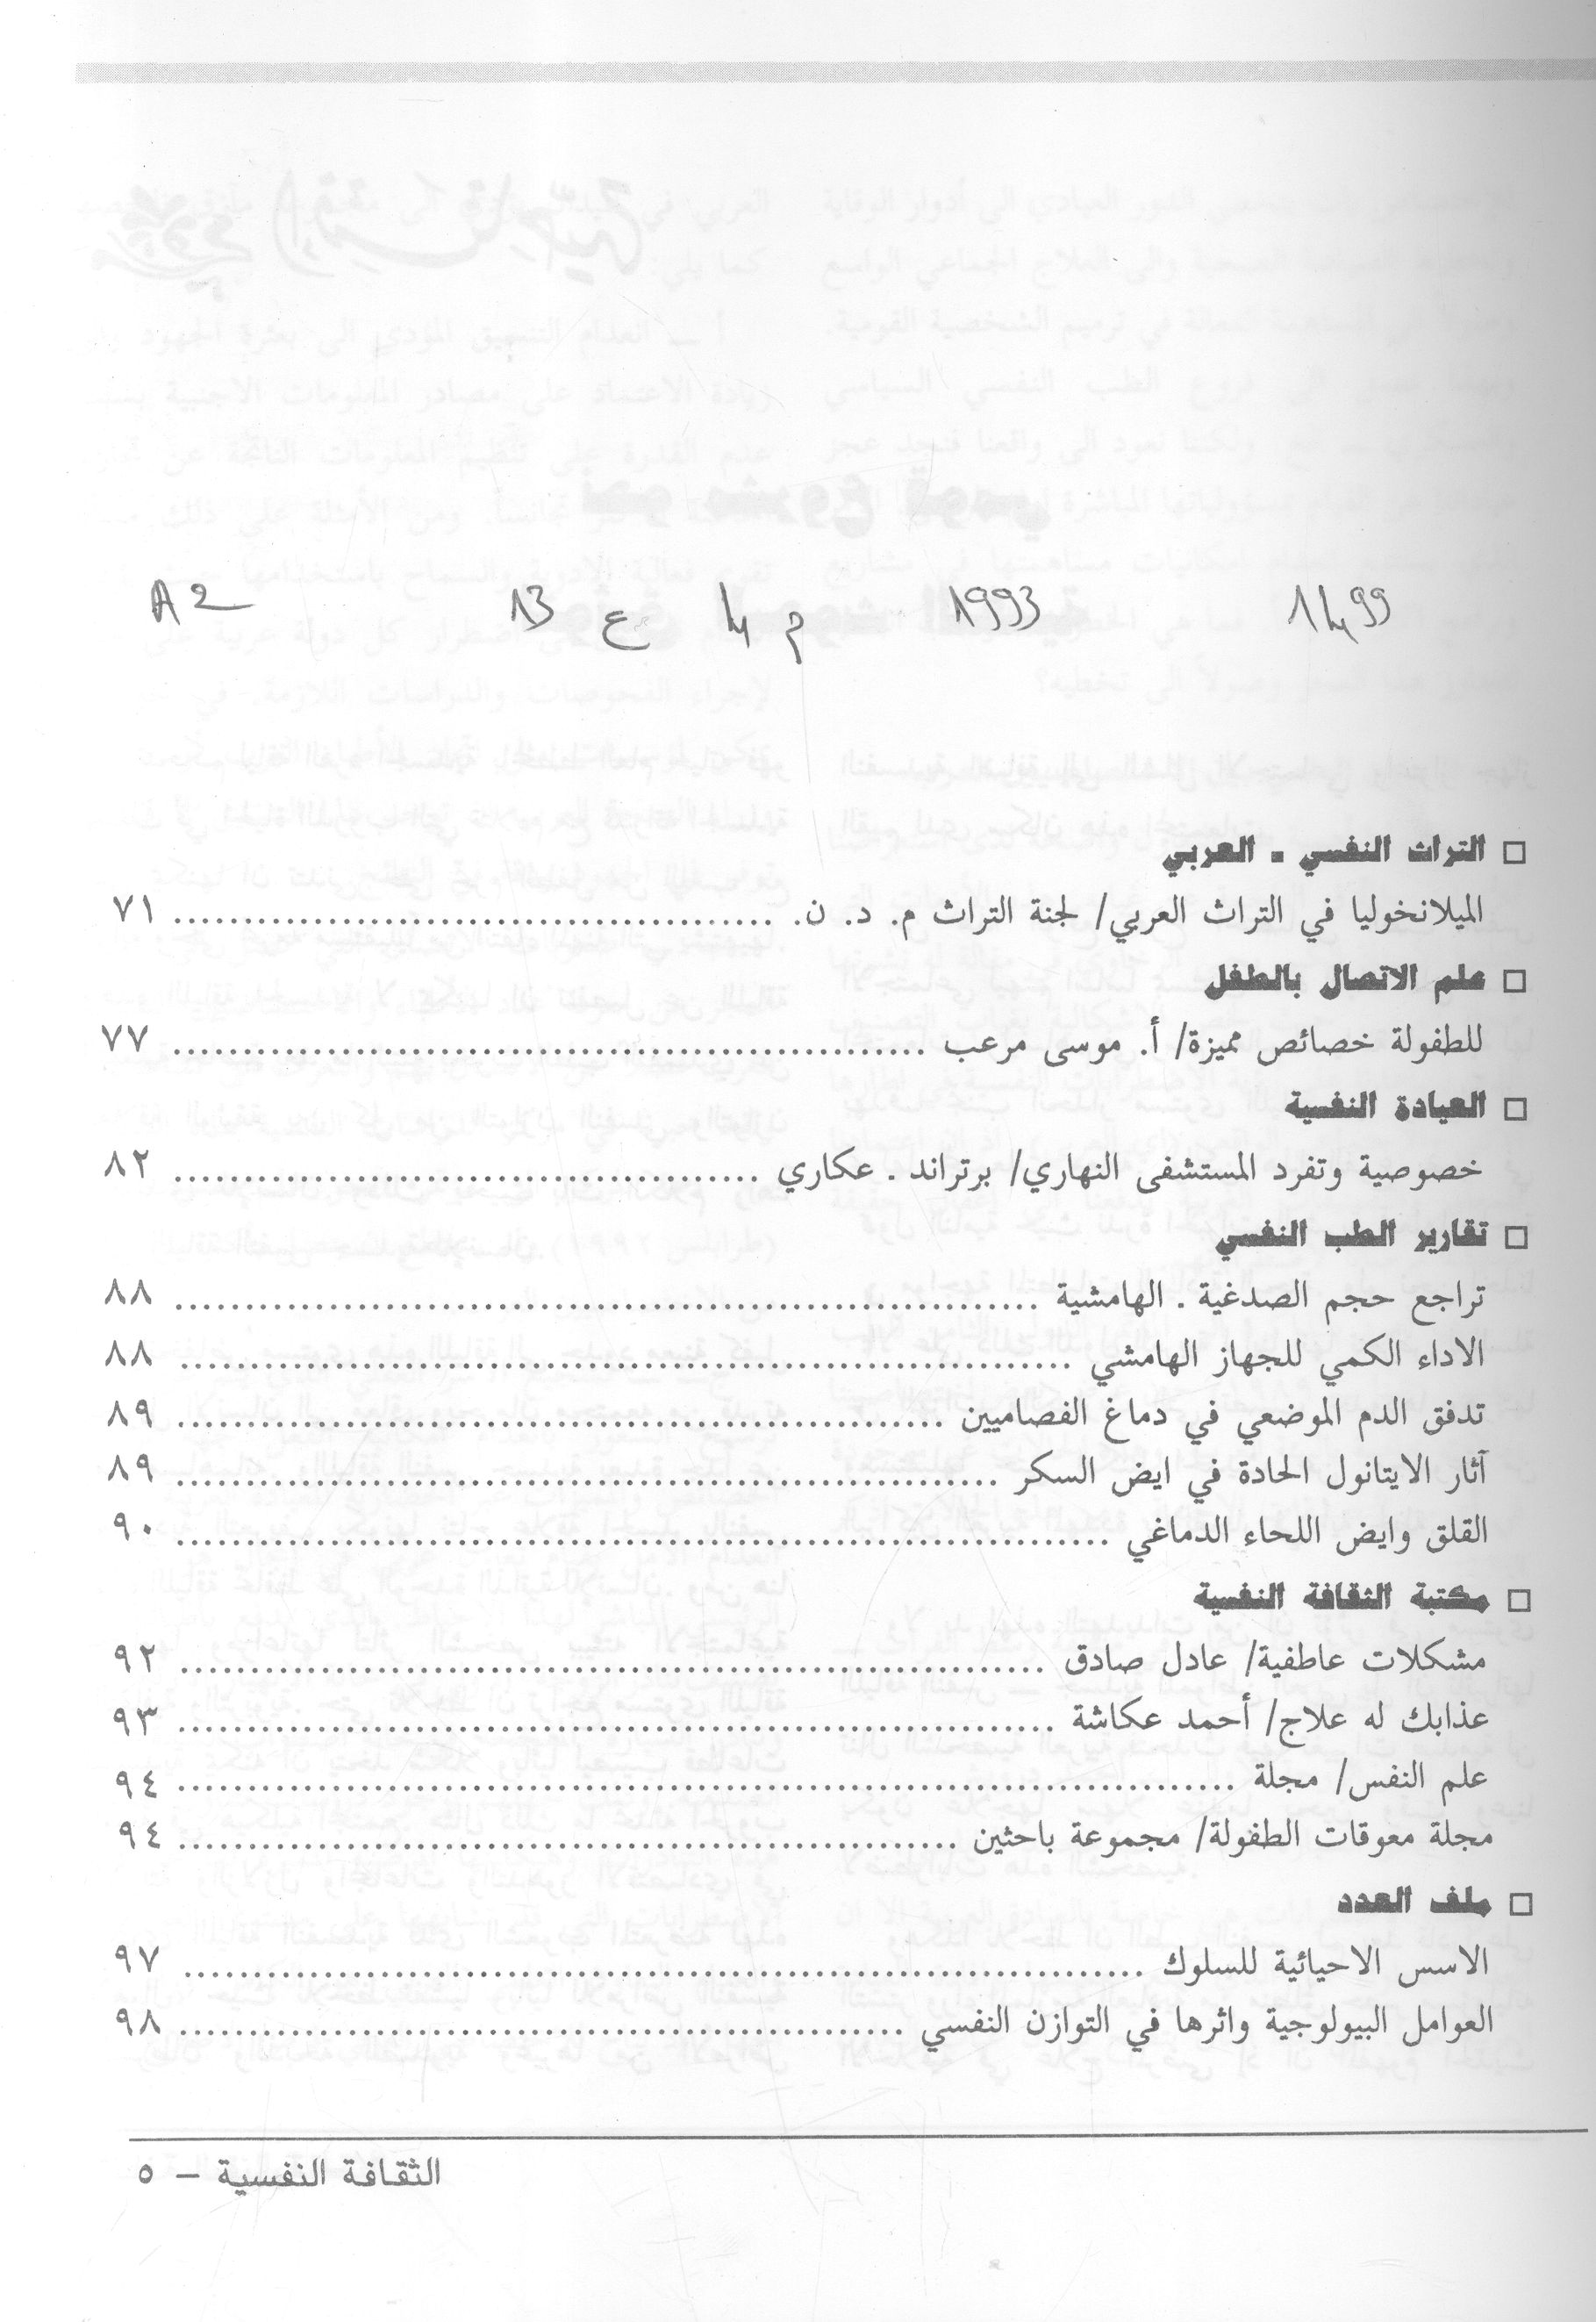 1499 1993 م 4 ع 13 A2
□ التراث النفسي - العربي
الميلانخوليا في التراث العربي/ لجنة التراث م. د. ن. ........ ٧١
□ علم الاتصال بالطفل
للطفولة خصائص مميزة/ أ. موسى مرعب ........ ٧٧
□ العيادة النفسية
خصوصية وتفرد المستشفى النهاري/ برتراند . عكاري ........ ٨٢
□ تقارير الطب النفسي
تراجع حجم الصدغية . الهامشية ........ ٨٨
الاداء الكمي للجهاز الهامشي ........ ٨٨
تدفق الدم الموضعي في دماغ الفصاميين ........ ٨٩
آثار الايتانول الحادة في ايض السكر ........ ٨٩
القلق وايض اللحاء الدماغي ........ ٩٠
□ مكتبة الثقافة النفسية
مشكلات عاطفية/ عادل صادق ........ ٩٢
عذابك له علاج/ أحمد عكاشة ........ ٩٣
علم النفس/ مجلة ........ ٩٤
مجلة معوقات الطفولة/ مجموعة باحثين ........ ٩٤
□ ملف العدد
الاسس الاحيائية للسلوك ........ ٩٧
العوامل البيولوجية واثرها في التوازن النفسي ........ ٩٨
الثقافة النفسية – ٥